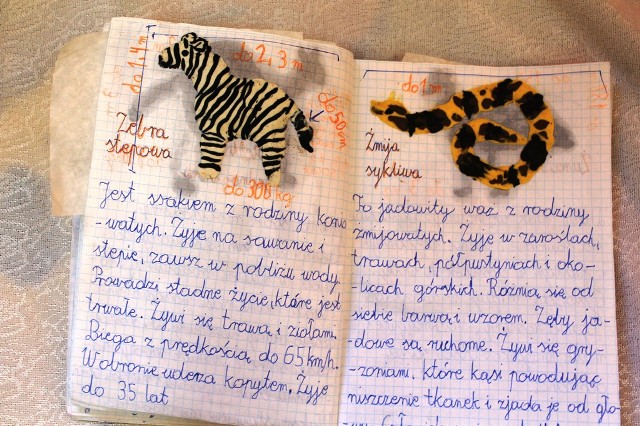 do 1,4 m
do 2,3 m
do 50 cm
Zebra
stepowa
do 300 kg
Jest ssakiem z rodziny konio
-watych. Żyje na sawannie i
stepie, zawsz w pobliżu wody.
Prowadzi stadne życie, które jest
trwałe. Żywi się trawą i ziołami.
Biega z prędkością do 65 km/h.
W obronie uderza kopytem. Żyje
do 35 lat
do 1 m
Żmija
sykliwa
To jadowity wąż z rodziny
żmijowatych. Żyje w zaroślach,
trawach, półpustyniach i oko-
-licach górskich. Różnią się od
siebie barwą i wzorem. Zęby ja-
dowe są ruchome. Żywi się gry-
-zoniami, które kąsi powodując
niszczenie tkanek i zjada je od gło-